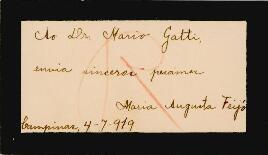 Ao Dr. Mario Gatti,
envia sinceros pezames
Maria Augusta Feijó
Campinas, 4-7-919